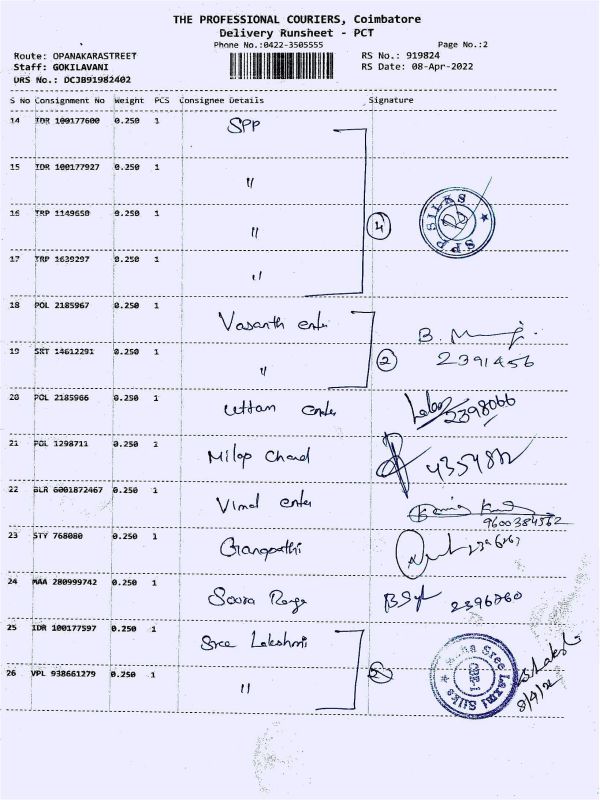 THE PROFESSIONAL COURIERS, Coimbatore
Delivery Runsheet - PCT
Phone No.:0422-3505555 Page No.:2
Route: OPANAKARASTREET RS No.: 919824
Staff: GOKILAVANI RS Date: 08-Apr-2022
DRS No.: DCJB91982402
S No Consignment No Weight PCS Consignee Details Signature
14 IDR 100177600 0.250 1 SPP
15 IDR 100177927 0.250 1 〃
16 TRP 1149650 0.250 1 〃 4
SPP SILKS
17 TRP 1639297 0.250 1 〃
18 POL 2185967 0.250 1 Vasanth enter B.
19 SRT 14612291 0.250 1 〃 2 2391456
20 POL 2185966 0.250 1 Uttam enter 2398066
21 POL 1298711 0.250 1 Milap Chand
22 BLR 6001872467 0.250 1 Vimal enter
9600384562
23 STY 768080 0.250 1 Ganapathi
24 MAA 280999742 0.250 1 2396760
25 IDR 100177597 0.250 1 Sree Lakshmi
26 VPL 938661279 0.250 1 〃
Sree Laxmi Silks
CBE-1
8/4/22